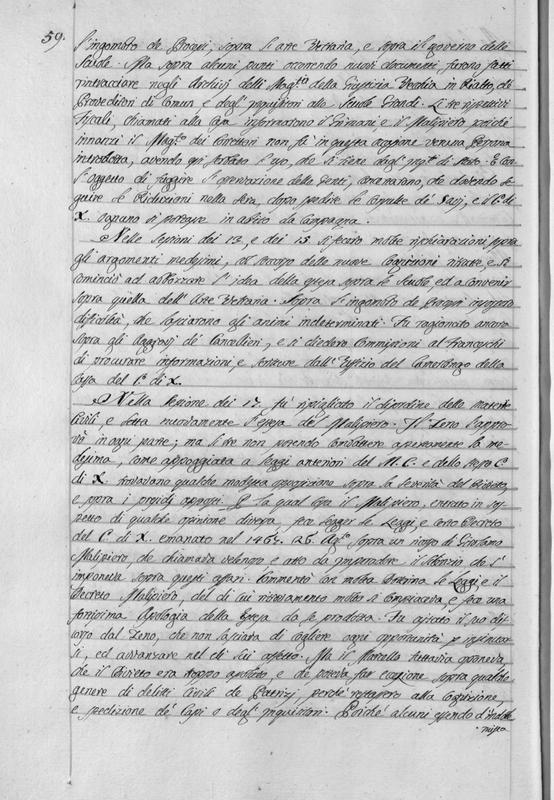 59.
l'ingombro de Processi, sopra l'arte Vetraria, e sopra il governo delle
Scuole. Ma sopra alcuni punti occorendo nuovi documenti furono fatti
rintracciare negli Archivj delli Mag.ti della Giustizia Vecchia in Rialto, di
Proveditori di Comun e degl'inquisitori alle Scuole Grandi. Li tre rispettivi
Fiscali, chiamati alla informarono il Grimani, e il Malipiero poiché
innanzi il Mag.to dei Correttori non fù in questa veruna Persona
introdotta, avendo così l'uso, che si tiene dagl'inq.ri di Stato. E con
l'oggetto di fuggire l'osservazione delle Genti, che dovendo se-
guire le Riduzioni nella Sera, dopo spedite le Consulte di Savj, e il C. di
X. ognuno si portasse in abito da Campagna.
Nelle Sessioni dei 13, e dei 15 si fecero molte sopra
gli argomenti medesimi, col scorgo delle nuove Cognizioni rilevate, e si
cominciò ad abborrare l'idea della presa sopra le Scuole, ed a convenir
sopra quella dell'Arte Vetraria. Sopra l'ingombro de Processi insorsero
difficoltà, che lasciarono gli animi indeterminati. Fù ragionato ancora
sopra gli aggravj dei Cancellieri, e si diedero Commissioni al Franceschi
di procurare informazioni, e Scritture dall'Uffizio del Camerlengo della
Cassa del C. di X.
Nella Sessione dei 17. fù ripigliato il disordine delle materie
Civili, e letta nuovamente l'estesa del Malipiero. Il Zeno l'appro-
và in ogni parte; ma li tre non potendo combattere apertamente la me-
desima, come appoggiata a Leggi anteriori del M. C. e dello stesso C.
di X. qualche modesta opposizione sopra la Severità del Divieto,
e sopra i . Per la qual cosa il Malipiero, entrato in so-
spetto di qualche opinione diversa, fece legger le Leggi, e certo Decreto
del C. di X. emanato nel 1467. 26. Ag.to sopra un ricorso di Girolamo
Malipiero, che chiamava velenoso e atto da impedire il Silenzio che s'
imponeva sopra questi affari. Commentò con molta Dottrina le Leggi e il
Decreto Malipiero, del di cui ritrovamento molto si compiaceva, e fece una
fortissima Apologia della Estesa da lui prodotta. Fu assistito il suo di-
scorso dal Zeno, che non lasciava di cogliere ogni opportunità p
si, ed avvanzare nel di lui affetto. Ma il Marcello tuttavia opponeva,
che il Divieto era troppo assoluto, e che poteva far cessione sopra qualche
genere di delitti Civili de Patrizj, perchè restassero alla Cognizione,
e spedizione de' Capi o degl'inquisitori. Poichè alcuni essendo d'indole
mista